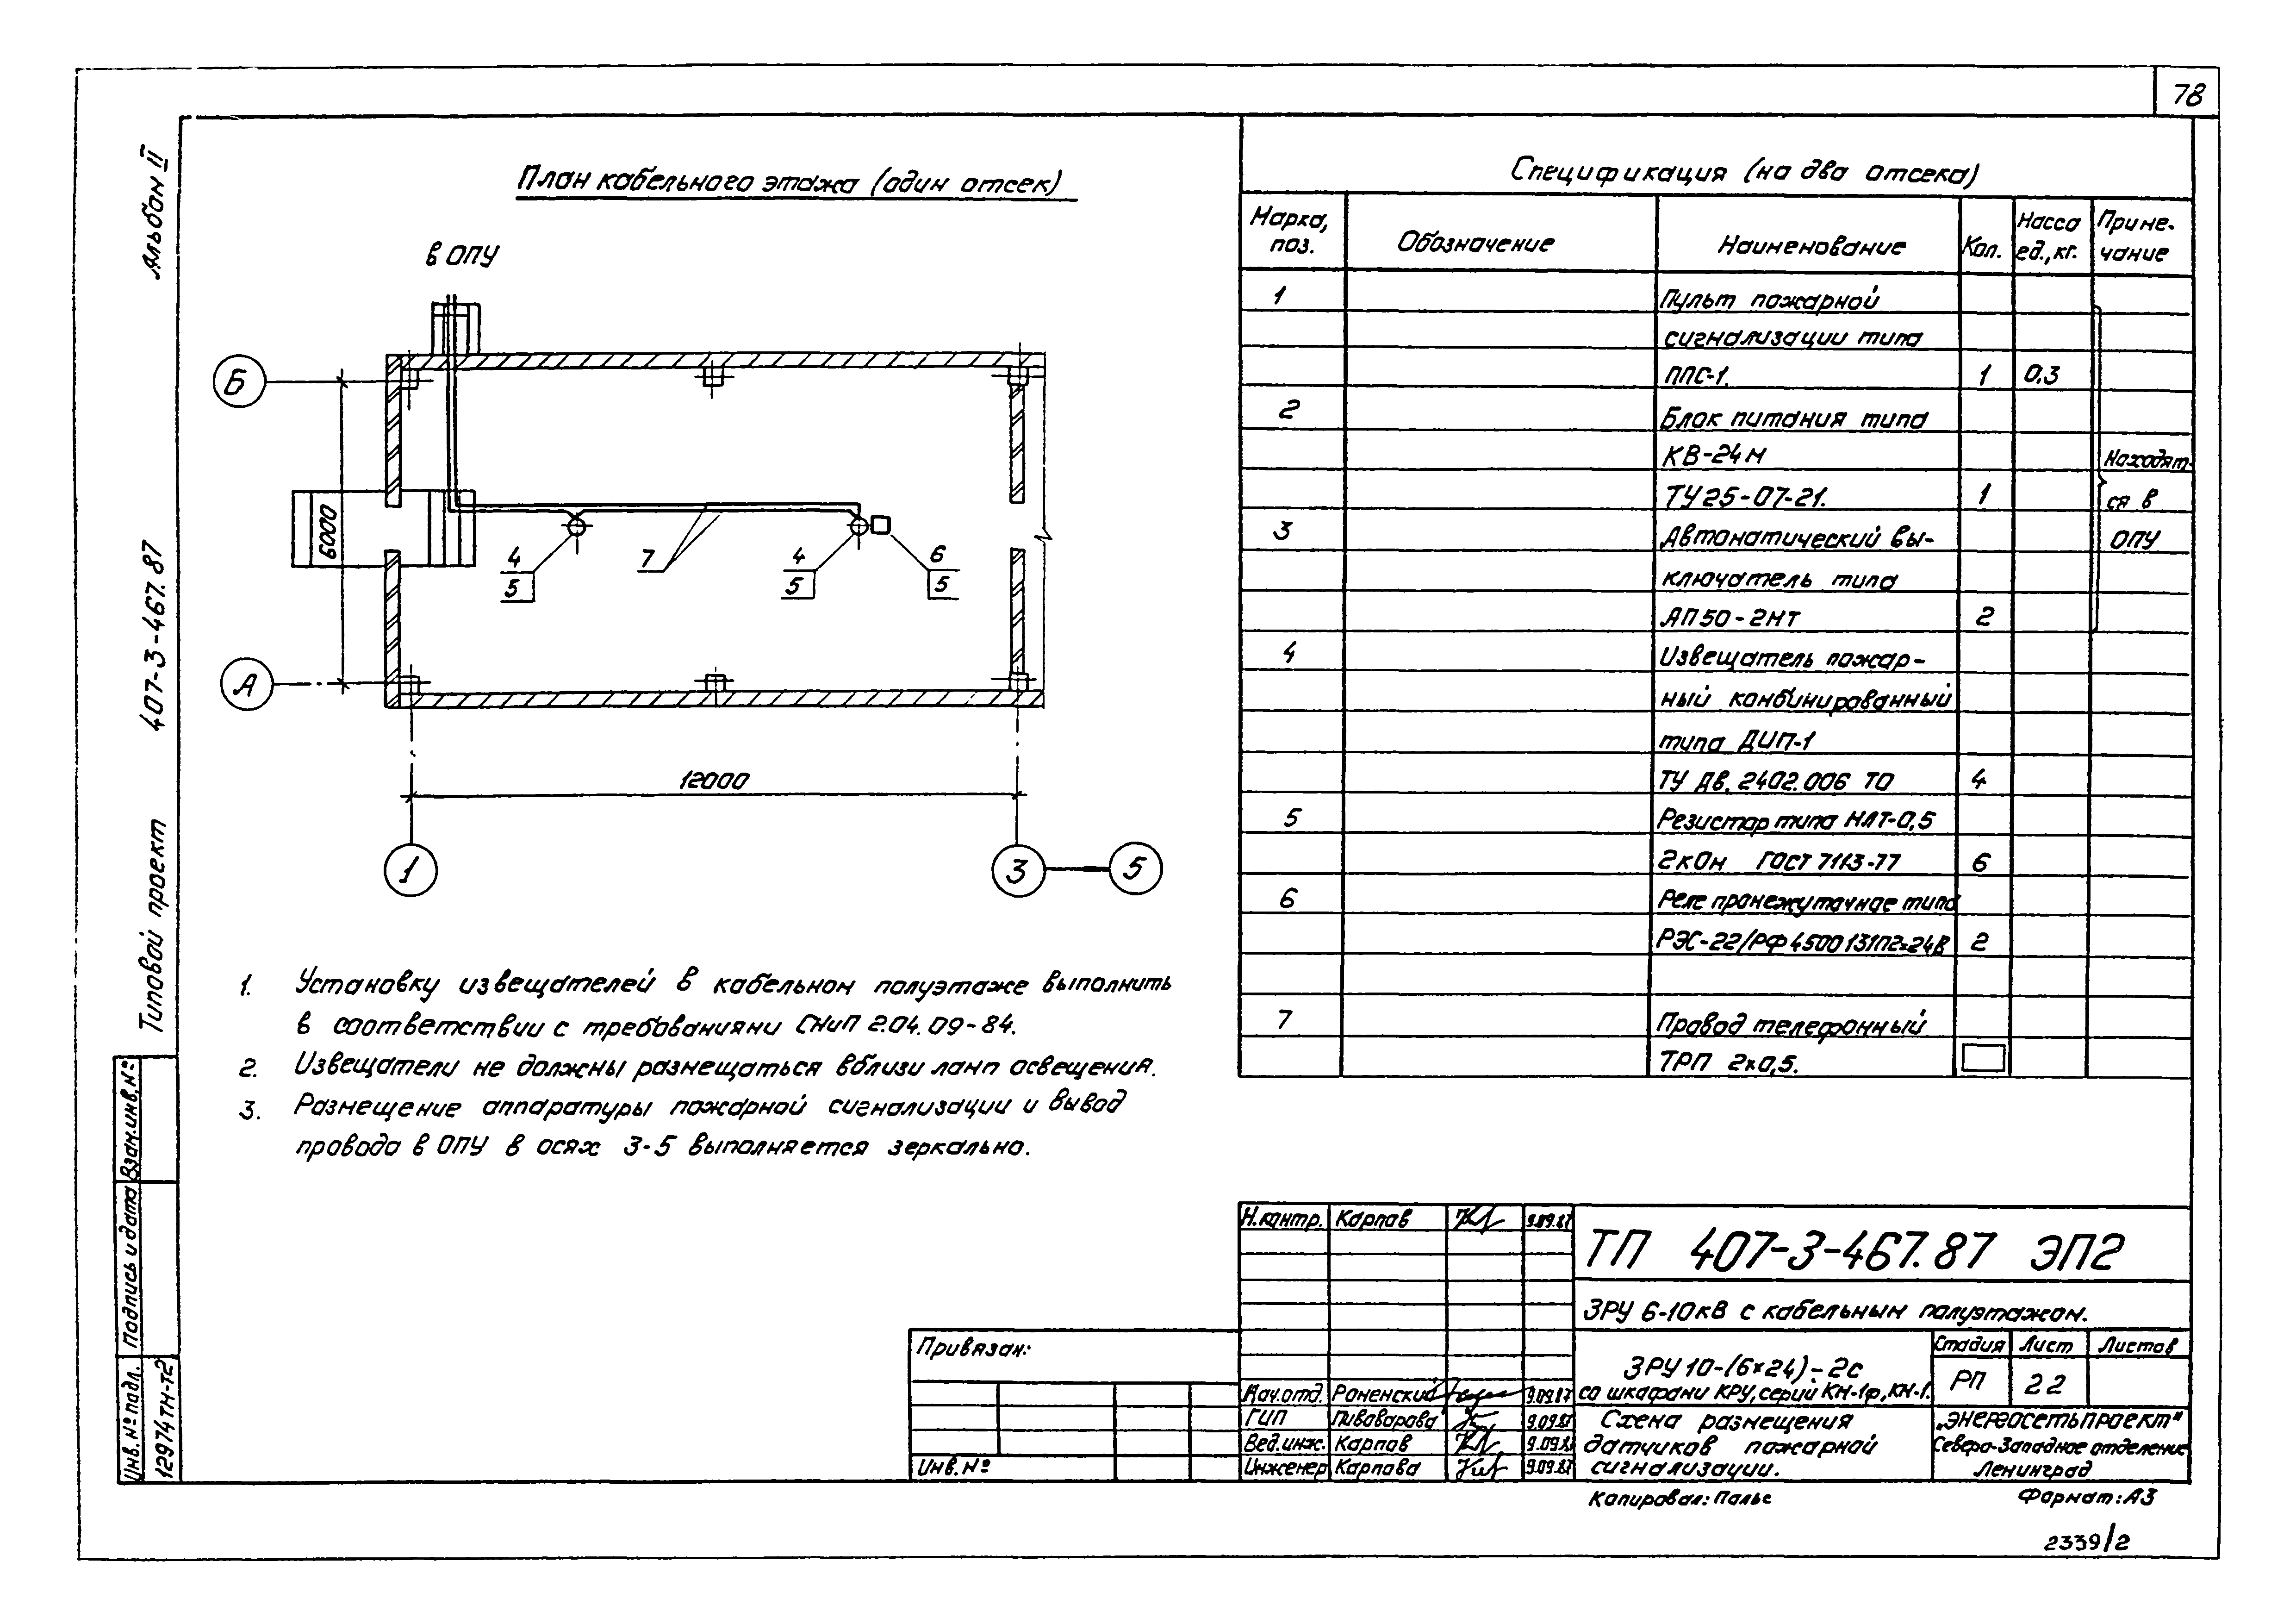 78
Альбом II
407-3-467.87
Типовой проект
Взам.инв.№
Подпись и дата
Инв.№подл.
12974тм-т2
План кабельного этажа (один отсек)
в ОПУ
Б
А
6000
4
5
7
4
5
6
5
12000
1
3
5
1. Установку извещателей в кабельном полуэтаже выполнить
в соответствии с требованиями СНиП 2.04.09-84.
2. Извещатели не должны размещаться вблизи ламп освещения.
3. Размещение аппаратуры пожарной сигнализации и вывод
провода в ОПУ в осях 3-5 выполняется зеркально.
Спецификация (на два отсека)
Марка, поз. Обозначение Наименование Кол. Масса ед., кг. Приме- чание
1 Пульт пожарной
сигнализации типа
ППС-1. 1 0,3
2 Блок питания типа
КВ-24м Находят-
ТУ25-07-21. 1 ся в
3 Автоматический вы- ОПУ
ключатель типа
АП50-2МТ 2
4 Извещатель пожар-
ный комбинированный
типа ДИП-1
ТУ дв. 2402.006 ТО 4
5 Резистор типа МЛТ-0,5
2кОм ГОСТ 7113-77 6
6 Реле промежуточное типа
РЭС-22/РФ4500131П2=24В 2
7 Провод телефонный
ТРП 2х0,5.
Н.контр. Карпов 9.09.87
Нач.отд. Роменский 9.09.87
ГИП Пивоварова 9.09.87
Вед.инж. Карпов 9.09.87
Инженер Карпова 9.09.87
Привязан:
Инв.№
ТП 407-3-467.87 ЭП2
ЗРУ 6-10кВ с кабельным полуэтажом.
ЗРУ 10-(6×24)-2с
со шкафами КРУ, серий КМ-1ф, КМ-1.
Стадия Лист Листов
РП 22
Схема размещения
датчиков пожарной
сигнализации.
„Энергосетьпроект"
Северо-Западное отделение
Ленинград
Копировал: Пальс
Формат: А3
2339/2